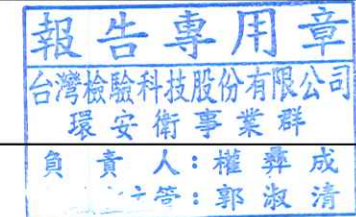 報告專用章
台灣檢驗科技股份有限公司
環安衛事業群
負責人：權彝成
：郭淑清